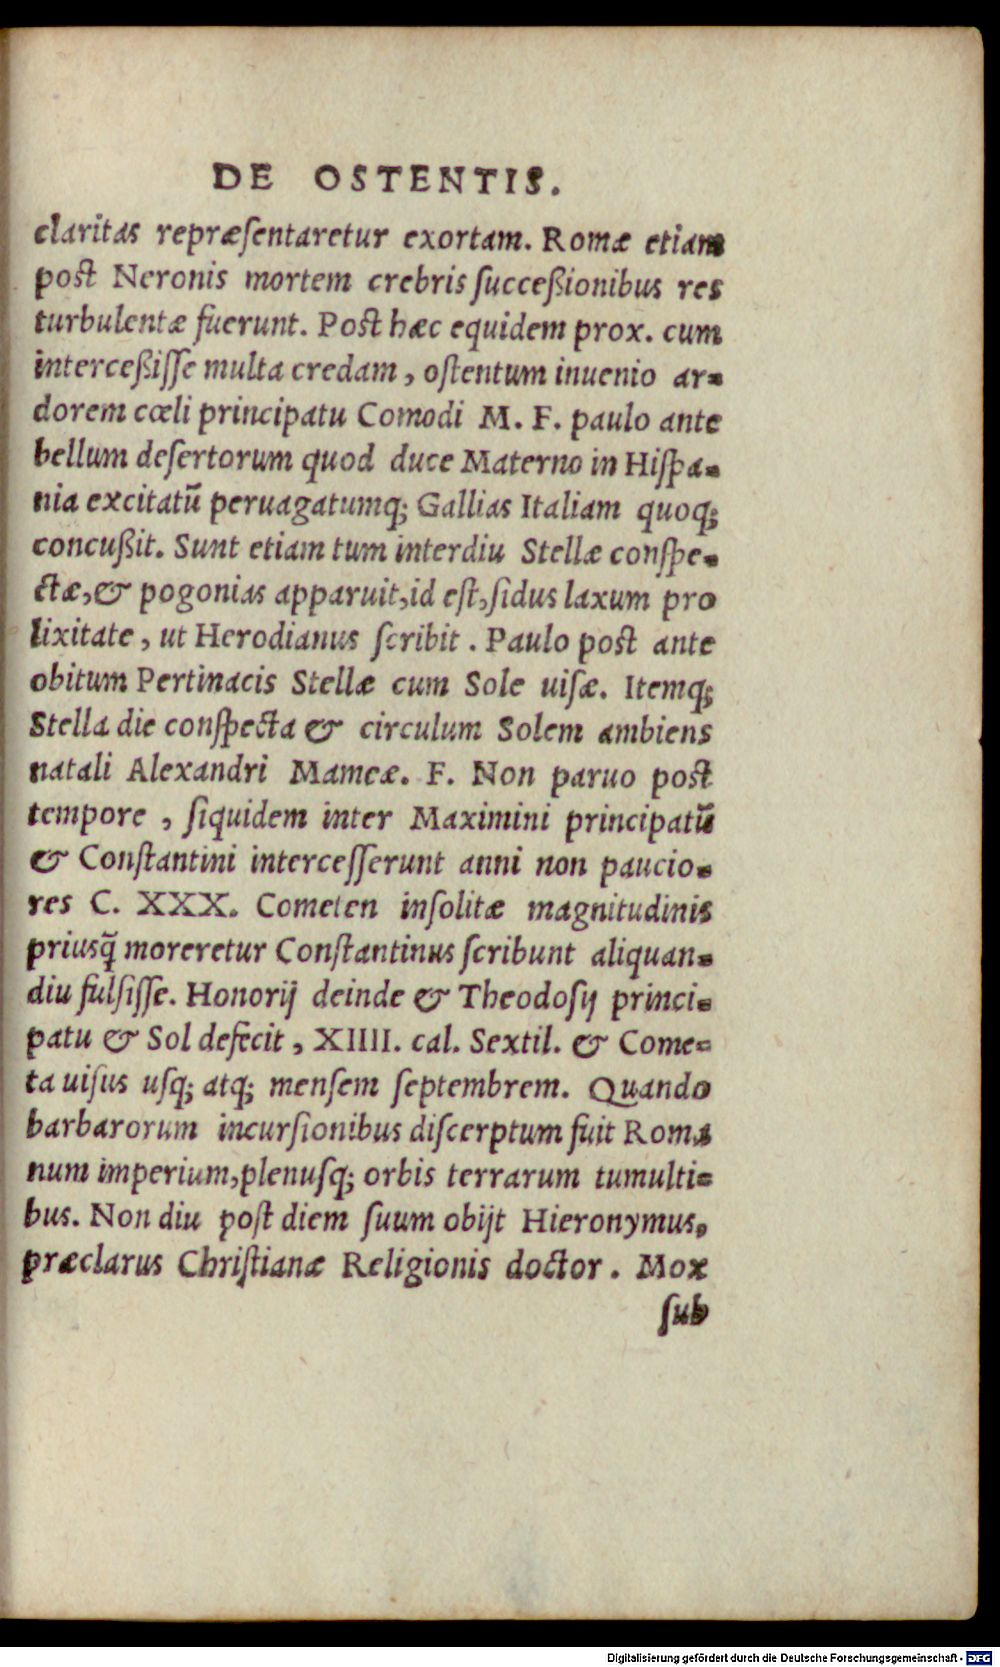 DE OSTENTIS.
claritas repræſentaretur exortam. Romæ etiam
poſt Neronis mortem crebris ſucceßionibus res
turbulentæ fuerunt. Poſt hæc equidem prox. cum
interceßiſſe multa credam, oſtentum inuenio ar=
dorem cœli principatu Comodi M. F. paulo ante
bellum deſertorum quod duce Materno in Hiſpa=
nia excitatũ peruagatumq; Gallias Italiam quoq;
concußit. Sunt etiam tum interdiu Stellæ conſpe=
ctæ, & pogonias apparuit, id eſt, ſidus laxum pro
lixitate, ut Herodianus ſcribit. Paulo poſt ante
obitum Pertinacis Stellæ cum Sole uiſæ. Itemq;
Stella die conſpecta & circulum Solem ambiens
natali Alexandri Mameæ. F. Non paruo poſt
tempore, ſiquidem inter Maximini principatũ
& Conſtantini interceſſerunt anni non paucio=
res C. XXX. Cometen inſolitæ magnitudinis
priusq̃ moreretur Conſtantinus ſcribunt aliquan=
diu fulſiſſe. Honorij deinde & Theodoſij princi=
patu & Sol defecit, XIIII. cal. Sextil. & Come=
ta uiſus uſq; atq; menſem ſeptembrem. Quando
barbarorum incurſionibus diſcerptum fuit Roma
num imperium, plenuſq; orbis terrarum tumulti=
bus. Non diu poſt diem ſuum obijt Hieronymus,
præclarus Chriſtianæ Religionis doctor. Mox
ſub
Digitalisierung gefördert durch die Deutsche Forschungsgemeinschaft - DFG